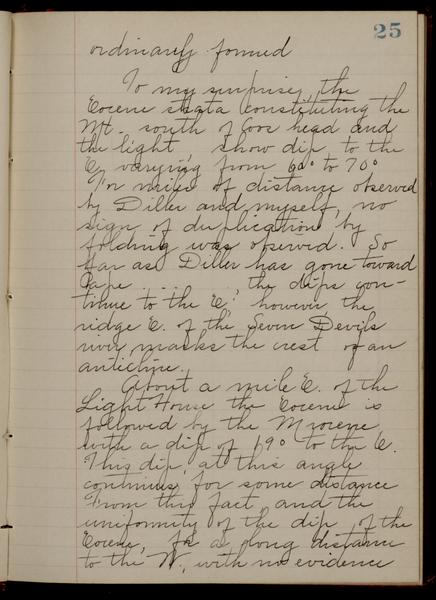 25
ordinarily formed
To my surprise, the
Eocene strata constituting the
Mt. south of Coos head and
the light show dip to the
E, varying from 60° to 70°
For miles of distance observed
by Diller and myself, no
sign of duplication by
folding was observed. So
far as Diller has gone toward
Cape ......, the dips con-
tinue to the E; however, the
ridge E. of the Seven Devils
river marks the crest of an
anticline.
About a mile E. of the
Light House the Eocene is
followed by the Miocene
with a dip of 69° to the E.
This dip, at this angle
continues for some distance
From this fact, and the
uniformity of the dip of the
Eocene, for a long distance
to the W, with no evidence